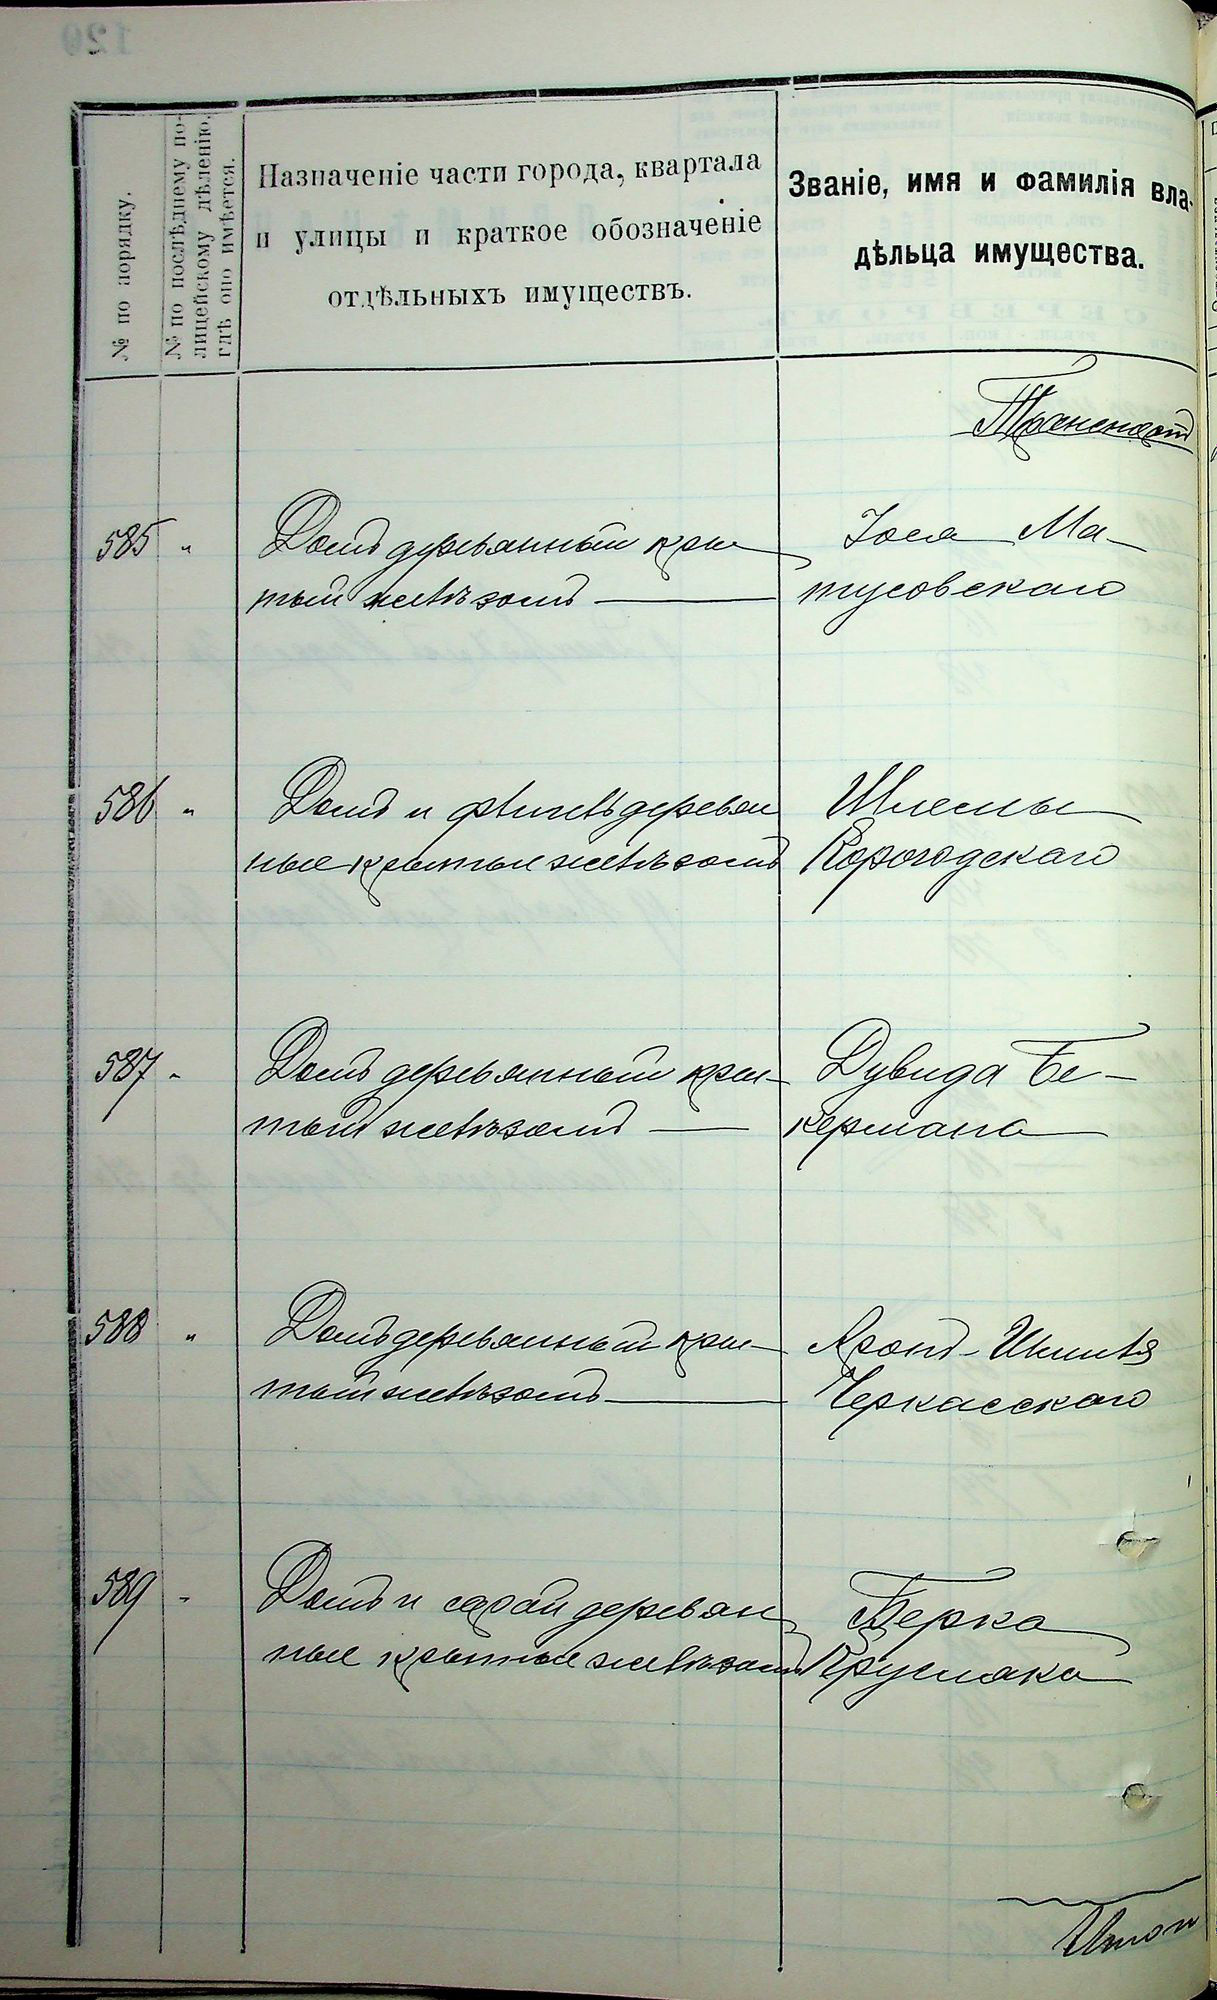 № по порядку.
№ по послѣднему по-
лицейскому дѣленію,
гдѣ оно имѣется.
Назначеніе части города, квартала
и улицы и краткое обозначеніе
отдѣльныхъ имуществъ.
Званіе, имя и фамилія вла-
дѣльца имущества.
Транспортъ
585 " Домъ деревянный кры-
тый желѣзомъ
Іося Ма-
тусовскаго
586 " Домъ и флигель деревян
ные крытые желѣзомъ
Шлемы
Корогодскаго
587 " Домъ деревянный кры-
тый желѣзомъ
Дувида Бе-
кермана
588 " Домъ деревянный кры-
тый желѣзомъ
Аронъ-
Черкасскаго
589 " Домъ и сарай деревян
ные крытые желѣзомъ
Берка
Итого